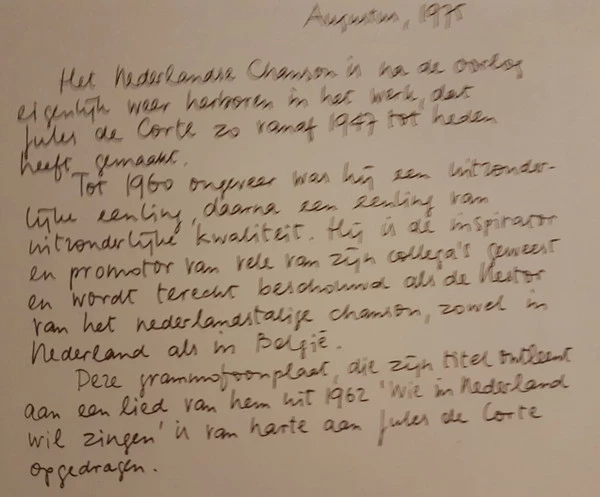 Augustus, 1975
Het Nederlandse Chanson is na de oorlog
eigenlijk weer herboren in het werk, dat
Jules de Corte zo vanaf 1947 tot heden
heeft gemaakt.
Tot 1960 ongeveer was hij een uitzonder-
lijke eenling, daarna een eenling van
uitzonderlijke kwaliteit. Hij is de inspirator
en promotor van vele van zijn collega's geweest
en wordt terecht beschouwd als de Nestor
van het nederlandstalige chanson, zowel in
Nederland als in België.
Deze grammofoonplaat, die zijn titel ontleent
aan een lied van hem uit 1962 'Wie in Nederland
wil zingen' is van harte aan Jules de Corte
opgedragen.